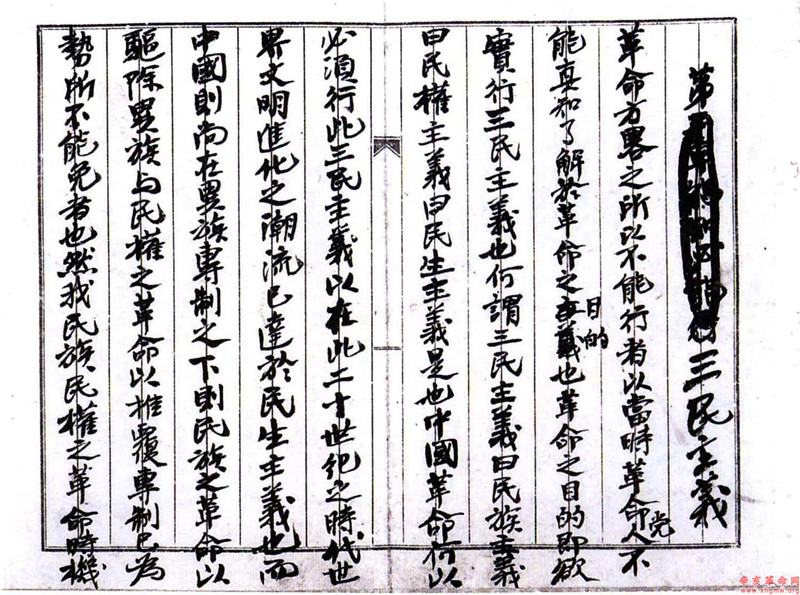 第三民主義
革命方畧之所以不能行者以當時革命党人不
能真知了解於革命之目的也革命之目的即欲
實行三民主義也何謂三民主義曰民族主義
曰民權主義曰民生主義是也中國革命何以
必須行此三民主義以在此二十世紀之時代世
界文明進化之潮流已達於民生主義也而
中國則尚在異族專制之下則民族之革命以
驅除異族与民權之革命以推覆專制已為
勢所不能免者也然我民族民權之革命時機
辛亥革命网
www.xhgmw.org